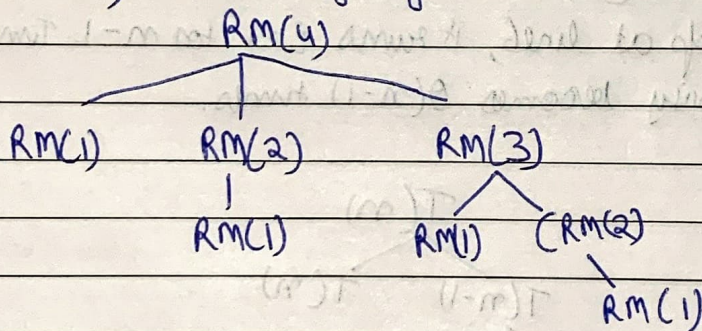 RM(4)
RM(1) RM(2) RM(3)
RM(1) RM(1) (RM(2)
RM(1)